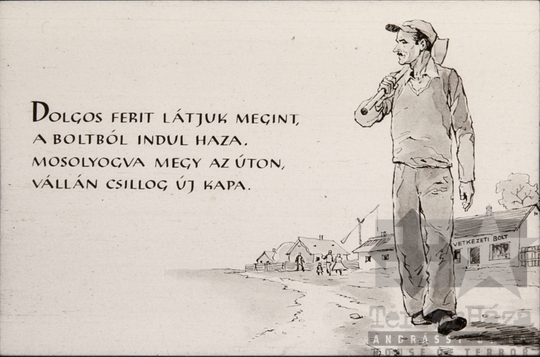 DOLGOS FERIT LÁTJUK MEGINT,
A BOLTBÓL INDUL HAZA.
MOSOLYOGVA MEGY AZ ÚTON,
VÁLLÁN CSILLOG ÚJ KAPA.
VETKEZETI BOLT
Terror Háza
ANDRÁSSY ÚT 60
HOUSE OF TERROR